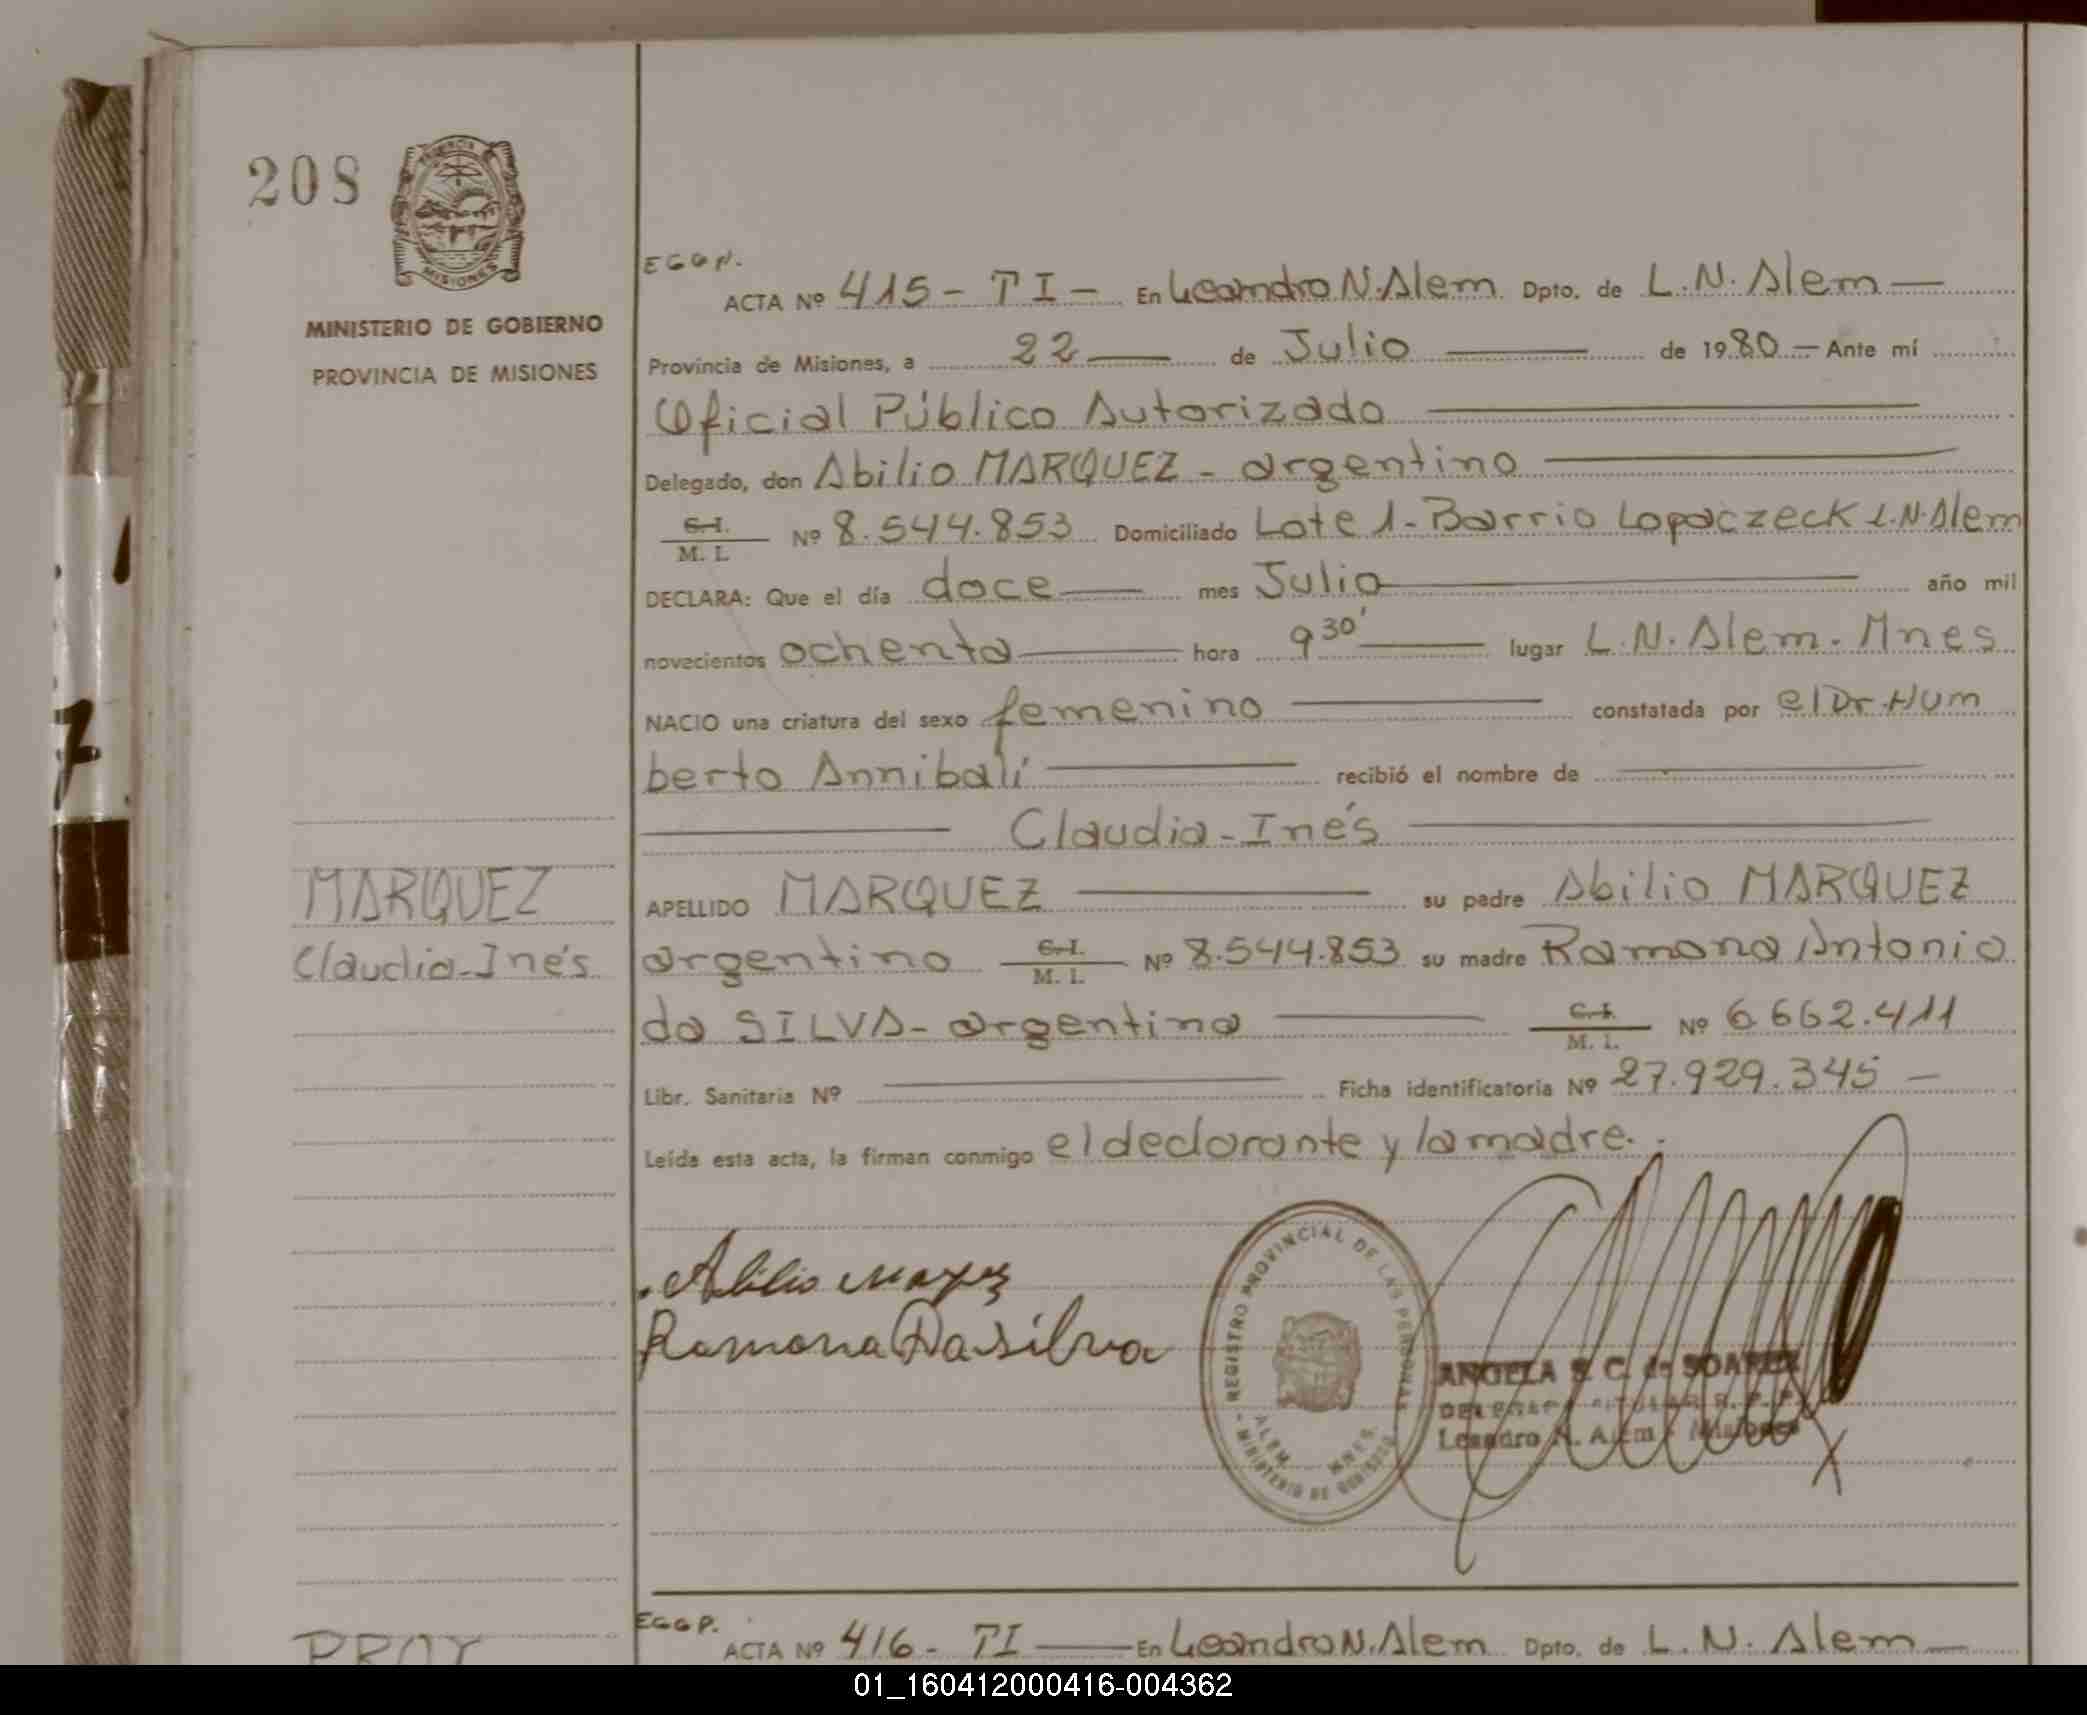 208
PROVINCIA
MISIONES
MINISTERIO DE GOBIERNO
PROVINCIA DE MISIONES
ACTA Nº 415 - TI - En Leandro N. Alem Dpto. de L. N. Alem —
Provincia de Misiones, a 22 — de Julio — de 1980 — Ante mí
Oficial Público Autorizado —
Delegado, don Abilio MARQUEZ - argentino —
C. I.
M. I. Nº 8.544.853 Domiciliado Lote 1 - Barrio Lopaczeck L.N. Alem
DECLARA: Que el día doce — mes Julio — año mil
novecientos ochenta — hora 9 30' — lugar L. N. Alem. Mnes
NACIO una criatura del sexo femenino — constatada por el Dr. Hum
berto Annibali — recibió el nombre de —
— Claudia - Inés —
MARQUEZ
Claudia - Inés
APELLIDO MARQUEZ — su padre Abilio MARQUEZ
argentino C. I.
M. I. Nº 8.544.853 su madre Ramona Antonia
da SILVA - argentina — C. I.
M. I. Nº 6.662.411
Libr. Sanitaria Nº — Ficha identificatoria Nº 27.929.345 —
Leída esta acta, la firman conmigo el declarante y la madre.
Abilio
Ramona Da silva
REGISTRO PROVINCIAL DE LAS PERSONAS
ALEM - MNES.
- MINISTERIO DE GOBIERNO -
ANGELA S. C. de SOAREZ
DELEGADA TITULAR R. P. P.
Leandro N. Alem - Misiones
ACTA Nº 416 - TI — En Leandro N. Alem Dpto. de L. N. Alem —
01_160412000416-004362